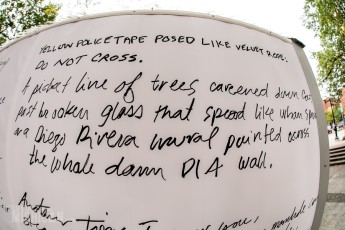 YELLOW POLICE TAPE POSED LIKE VELVET ROPE.
DO NOT CROSS.
A picket line of trees careened down
past broken glass that spread like urban
on a Diego Rivera mural painted across
the whole damn DIA wall.
you,